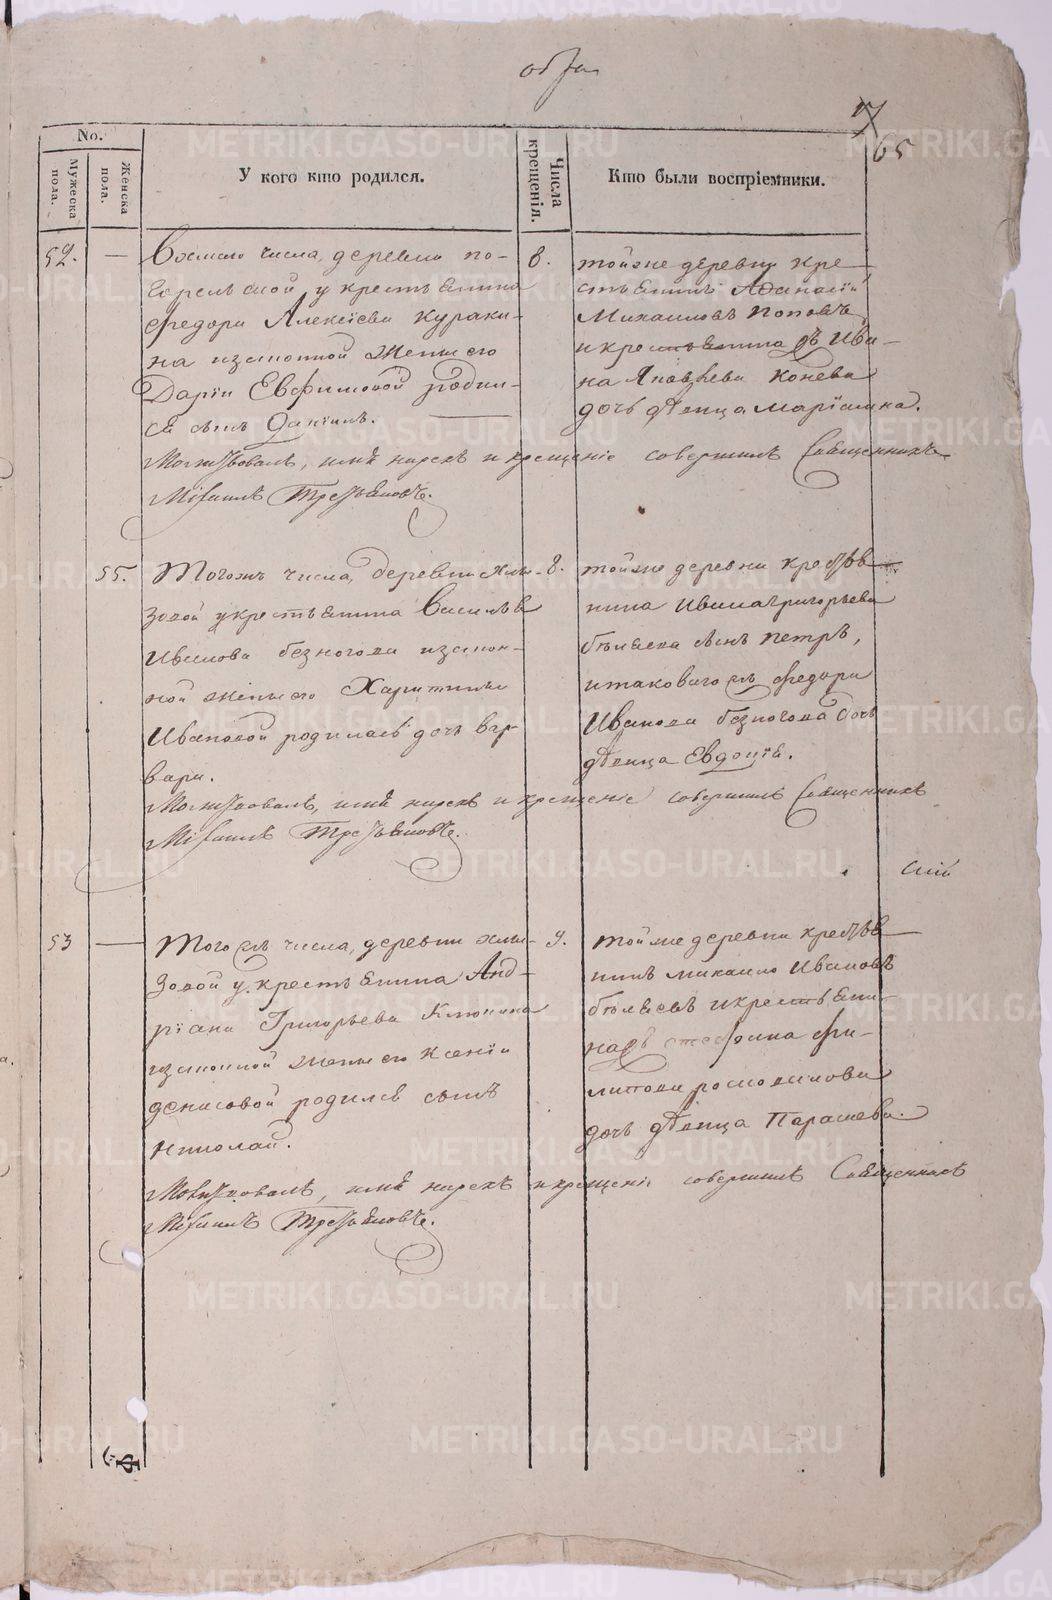 65
No.
Мужеска пола.
Женска пола.
У кого кто родился.
Числа крещенія.
Кто были воспріемники.
52. —
числа, деревни по-
у крестьянина
Федора Алексіева Кураки-
на изаконной жены его
Даріи Евфимовой родил-
ся сынъ Даніилъ.
8.
тойже деревни кре-
стьянинъ Афанасій
Михаиловъ Поповъ
и крестьянина Ива-
на Яковлева Конева
дочь дѣвица Маріамна.
Молитвовалъ, имя нарекъ и крещеніе совершилъ Священникъ
Михаилъ
55.
Тогожъ числа, деревни
зовой у крестьянина Василья
Иванова Безногова изакон-
ной жены его Харитины
Ивановой родилась дочь Вар-
вара.
8.
тойже деревни крестья-
нина Ивана Григорьева
Бѣляева сынъ Петръ,
и таковагожъ Федора
Иванова Безногова дочь
дѣвица Евдокія.
Молитвовалъ, имя нарекъ и крещеніе совершилъ Священникъ
Михаилъ
53 —
Тогожъ числа, деревни
зовой у крестьянина Анд-
ріана Григорьева Клюкина
изаконной жены его Ксеніи
Денисовой родился сынъ
Николай.
9.
тойже деревни крестья-
нинъ Михаило Ивановъ
Бѣляевъ и крестьяни-
на Стефана Фи-
липова
дочь дѣвица Параскева.
Молитвовалъ, имя нарекъ и крещеніе совершилъ Священникъ
Михаилъ
METRIKI.GASO-URAL.RU